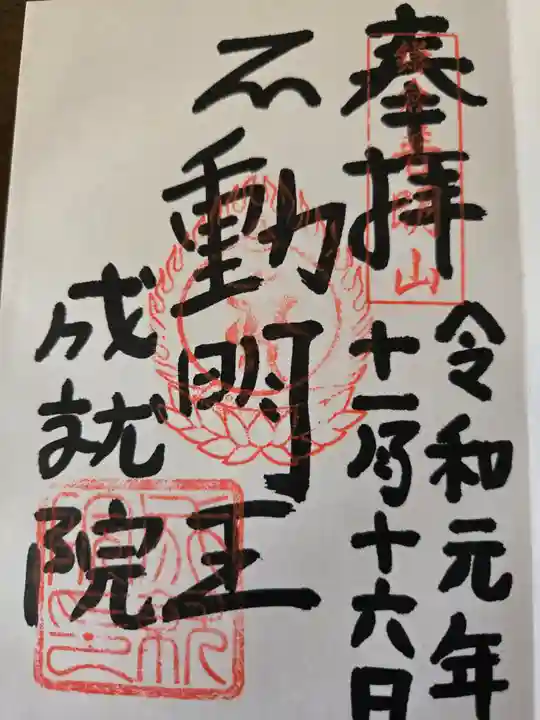 奉拝
普明山
令和元年
十一月十六日
不動明王
成就院